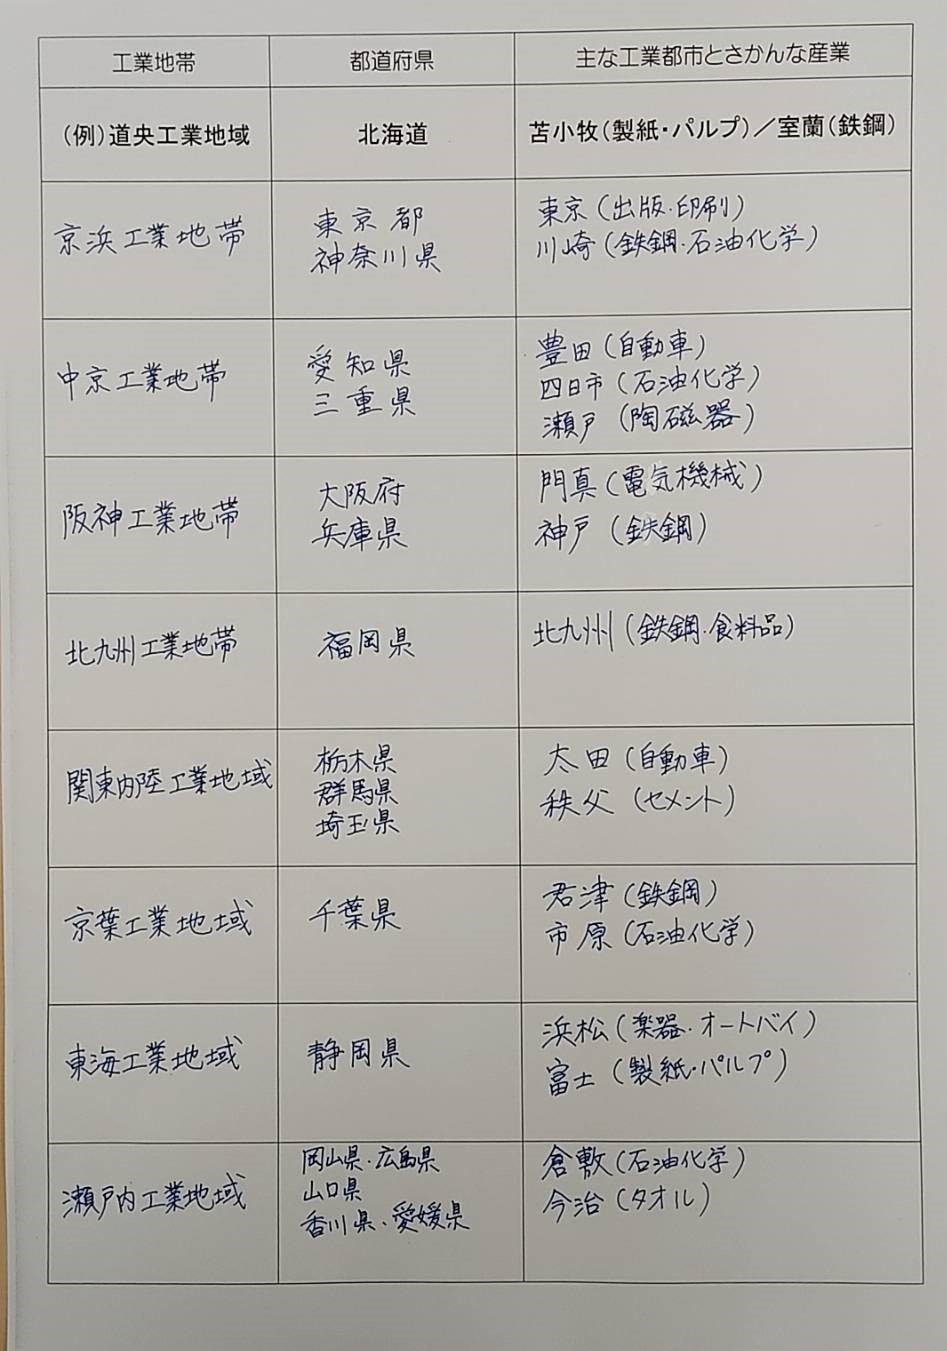 工業地帯 都道府県 主な工業都市とさかんな産業
(例)道央工業地域 北海道 苫小牧(製紙・パルプ)/室蘭(鉄鋼)
京浜工業地帯
東京都
神奈川県
東京(出版・印刷)
川崎(鉄鋼・石油化学)
中京工業地帯
愛知県
三重県
豊田(自動車)
四日市(石油化学)
瀬戸(陶磁器)
阪神工業地帯
大阪府
兵庫県
門真(電気機械)
神戸(鉄鋼)
北九州工業地帯
福岡県
北九州(鉄鋼・食料品)
関東内陸工業地域
栃木県
群馬県
埼玉県
太田(自動車)
秩父(セメント)
京葉工業地域
千葉県
君津(鉄鋼)
市原(石油化学)
東海工業地域
静岡県
浜松(楽器・オートバイ)
富士(製紙・パルプ)
瀬戸内工業地域
岡山県・広島県
山口県
香川県・愛媛県
倉敷(石油化学)
今治(タオル)